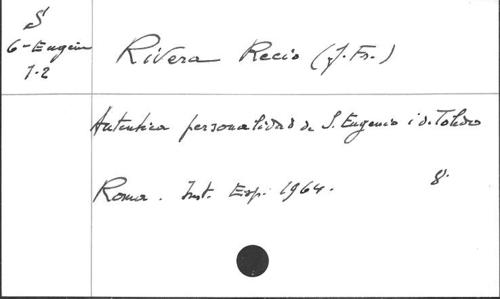 S
6-Eugenio
1-2
Rivera Recio (J. Fr.)
Autentica personalidad de S. Eugenio i de Toledo
Roma. Inst. Esp. 1964.
8.